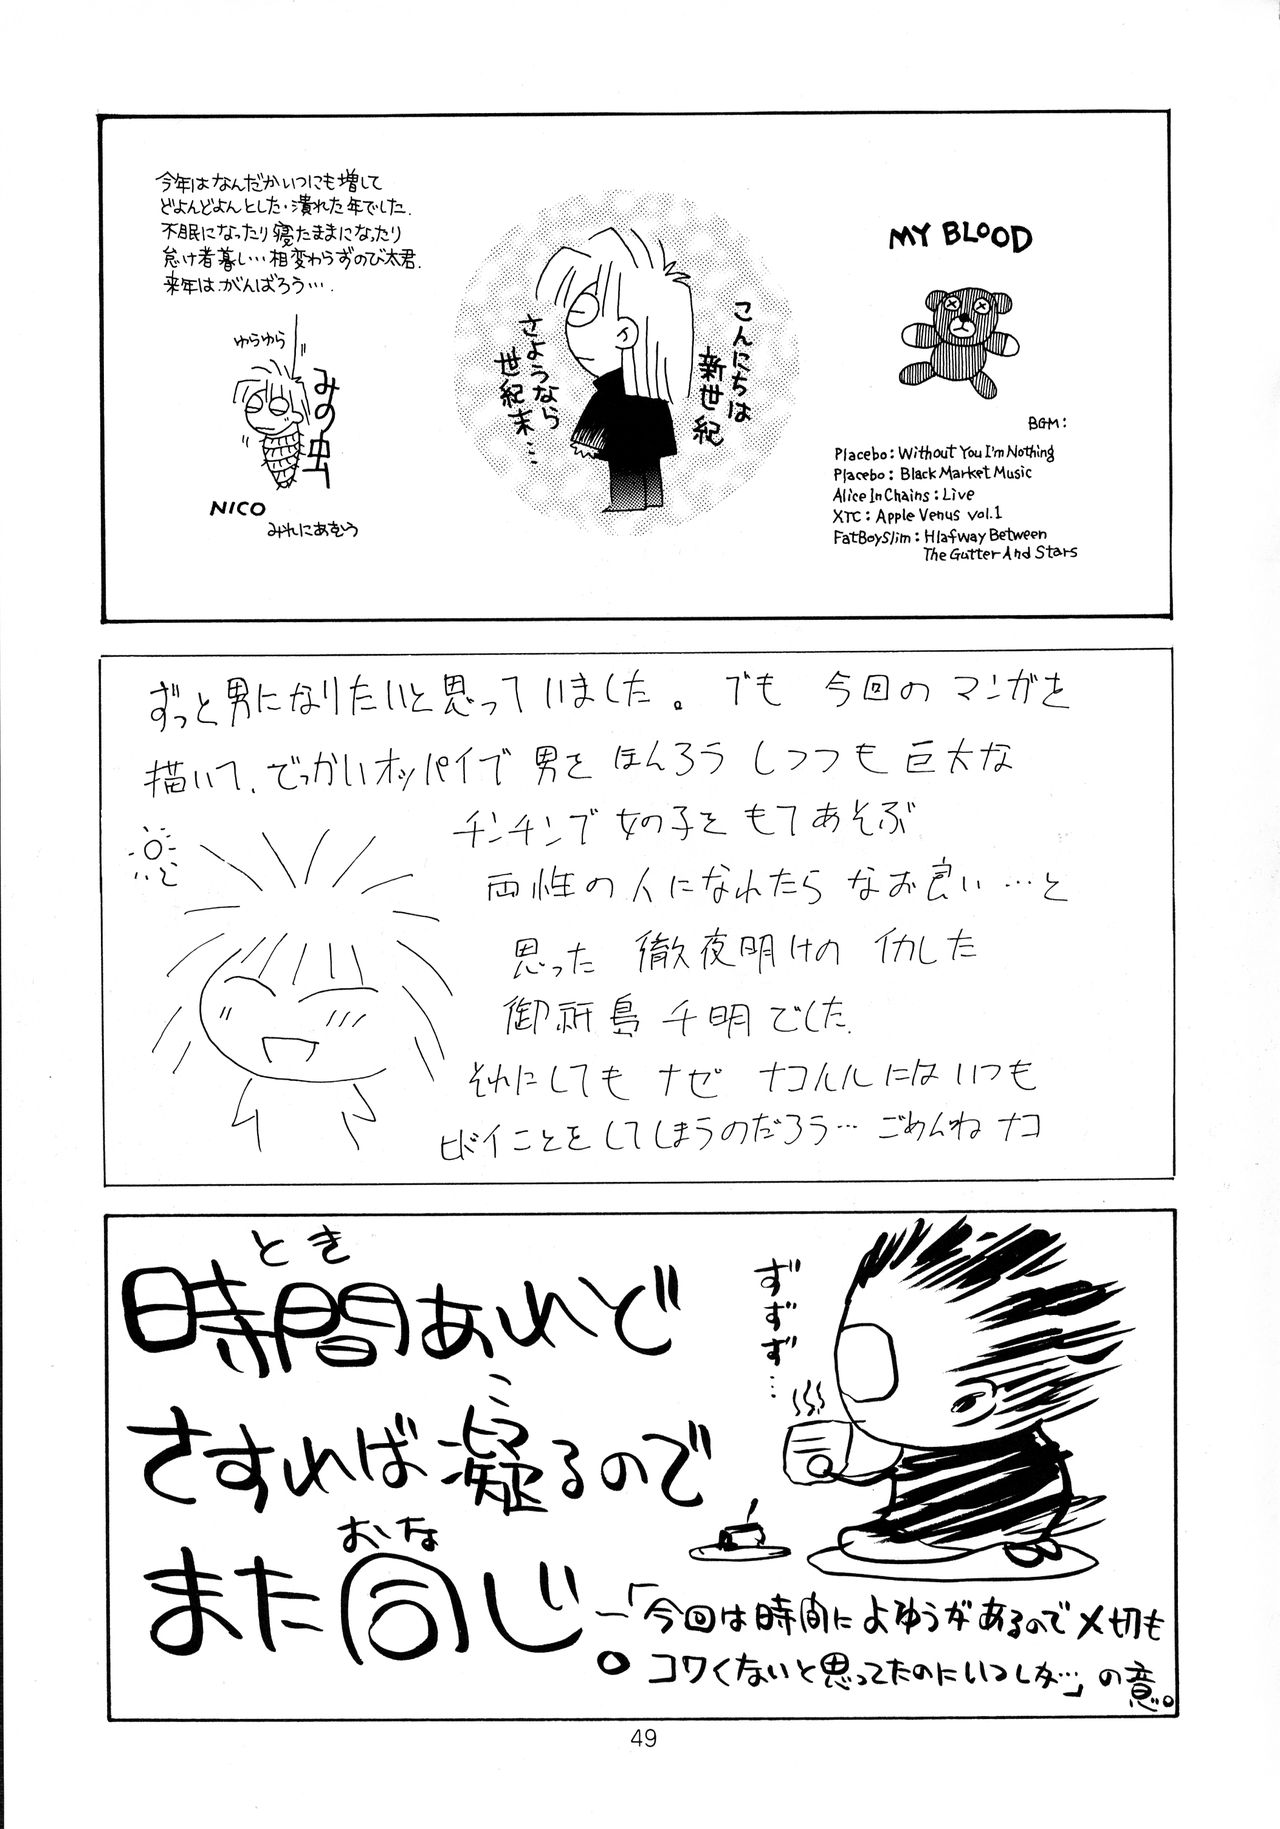 今年はなんだかいつにも増して
どよんどよんとした・潰れた年でした.
不眠になったり寝たままになったり
怠け者暮し…相変わらずのび太君.
来年は、がんばろう….
ゆらゆら
みの虫
NICO
みれにあむう
こんにちは
新世紀
さようなら
世紀末…
MY BLOOD
BGM:
Placebo: Without You I'm Nothing
Placebo: Black Market Music
Alice In Chains: Live
XTC: Apple Venus vol.1
FatBoySlim: Hlafway Between
The Gutter And Stars
ずっと男になりたいと思っていました。でも 今回のマンガを
描いて、でっかいオッパイで 男を ほんろう しつつも 巨大な
チンチンで 女の子を もてあそぶ
両性の人になれたら なお良い…と
思った 徹夜明けの イカした
御祈島 千明でした.
それにしても ナゼ ナコルルには いつも
ヒドイことをしてしまうのだろう… ごめんね ナコ
とき
時間あれど
さすれば凝るので
こ
また同じ。
おな
ずずず…
―「今回は時間によゆうがあるので〆切も
コワくないと思ってたのにいつしか…」の意。
49